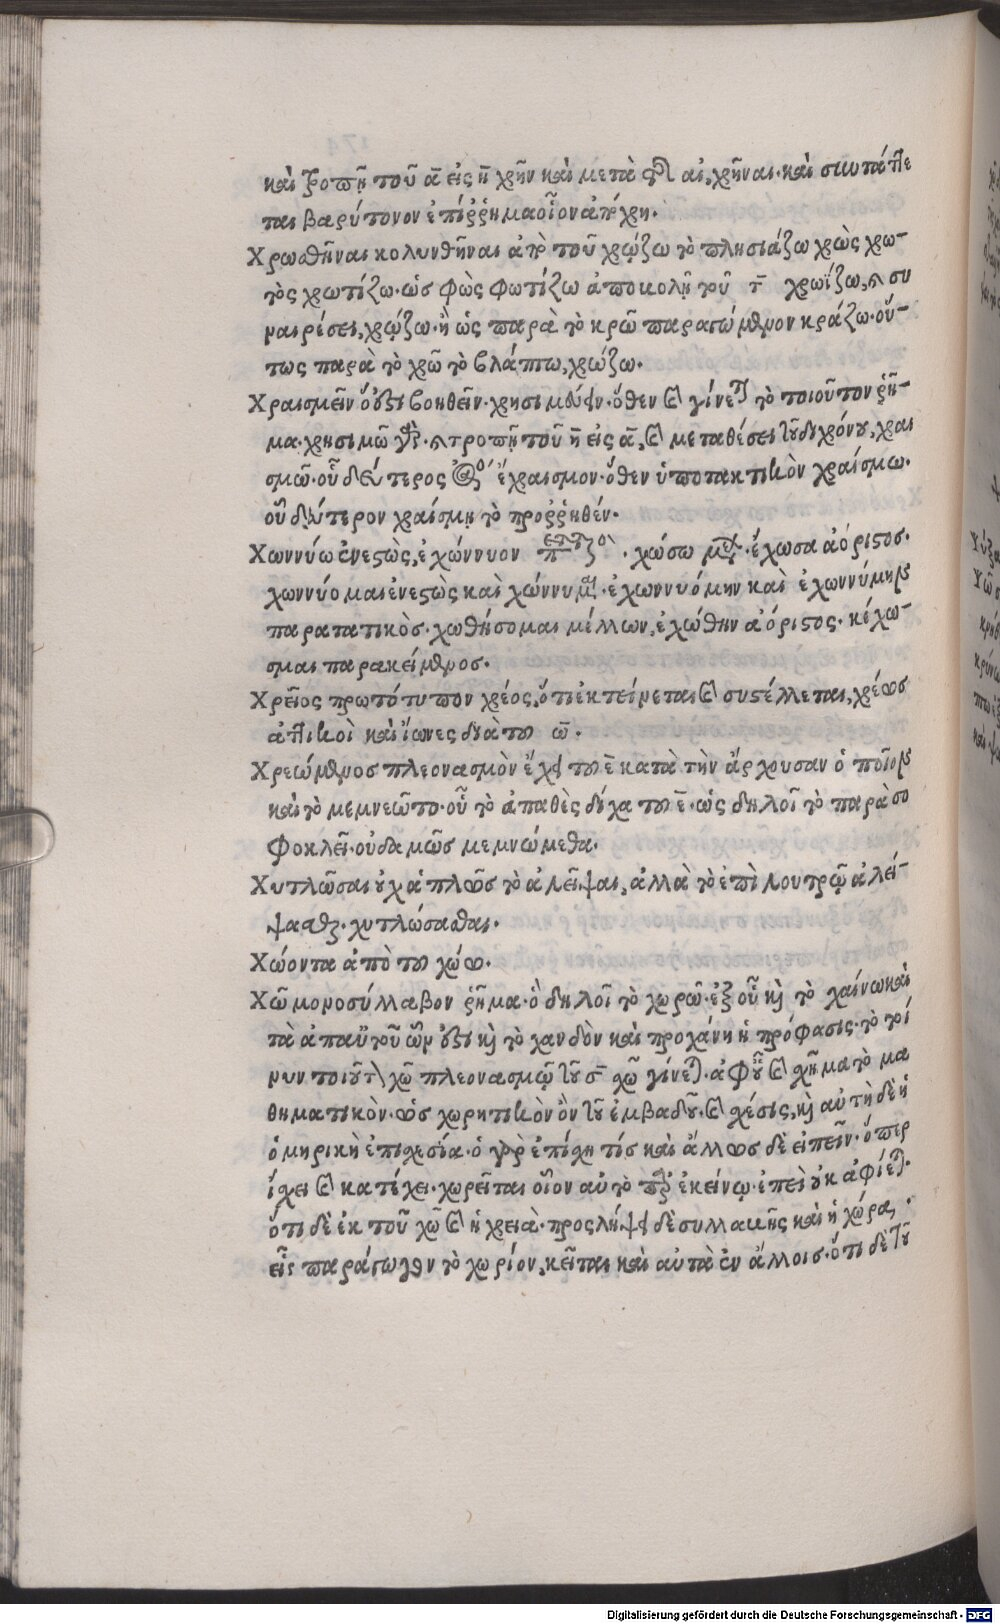 καὶ τροπῇ τοῦ α εἰς η χῆν καὶ μετὰ τ αι, χῆναι. καὶ συντάττε
ται βαρύτονον ἐπίῤῥημα οἷον ἀπέχρη.
Χρωσθῆναι κολυνθῆναι ἀπὸ τοῦ χρῴζω τὸ πλησιάζω χρὼς χρω-
τὸς χρωτίζω. ὡς φὼς φωτίζω ἀποκολῇ τοῦ τ χρωΐζω, συ
ναιρέσει, χρῴζω. ἢ ὡς παρὰ τὸ κρῶ παραγώμενον κράζω. οὕ-
τως παρὰ τὸ χρῶ τὸ βλάπτω, χρώζω.
Χραισμεῖν ὅ ἐστι βοηθεῖν. χρησιμεύειν. ὅθεν καὶ γίνεται τὸ τοιοῦτον ῥῆ-
μα. χρησιμῶ γάρ. τροπῇ τοῦ η εἰς α, καὶ μεταθέσει τοῦ διχρόνου, χραι
σμῶ. οὗ δεύτερος ἔχραισμον. ὅθεν ὑποτακτικὸν χραίσμω.
οὗ δεύτερον χραίσμῃ τὸ προῤῥηθέν.
Χωννύω ἐνεστὼς, ἐχώννυον . χώσω . ἔχωσα ἀόριστος.
χωννύομαι ἐνεστὼς καὶ χώννυμαι. ἐχωννυόμην καὶ ἐχωννύμην
παρατατικὸς. χωθήσομαι μέλλων, ἐχώθην ἀόριστος. κέχω-
σμαι παρακείμενος.
Χρεῖος πρωτότυπον χρέος, ὅτι ἐκτείνεται καὶ συστέλλεται, χρέως
ἀττικοὶ καὶ ἴωνες διὰ του ω.
Χρεώμενος πλεονασμὸν ἔχει του ε κατὰ τὴν ἄρχουσαν ὁ ποῖον
καὶ το μεμνεῶτο. οὗ τὸ ἀπαθὲς δίχα του ε. ὡς δηλοῖ τὸ παρὰ σο
φοκλεῖ. οὐδαμῶς μεμνώμεθα.
Χυτλῶσαι οὐχ ἁπλῶς τὸ ἀλεῖψαι, ἀλλὰ τὸ ἐπὶ λουτρῷ ἀλεί-
ψασθαι. χυτλώσασθαι.
Χώοντα ἀπὸ του χώω.
Χῶ μονοσύλλαβον ῥῆμα. ὃ δηλοῖ τὸ χωρῶ. ἐξ οὗ καὶ τὸ χαίνω καὶ
τὰ ἀπ αὐτοῦ ὧν ἐστι καὶ τὸ χανδὸν καὶ προχάνη ἡ πρόφασις. τὸ τοί
νυν τοιοῦτο χῶ πλεονασμῷ τοῦ σ σχῶ γίνεται. ἀφ οὗ καὶ σχῆμα τὸ μα
θηματικὸν. ὡς χωρητικὸν ὂν τοῦ ἐμβαδοῦ. καὶ σχέσις, καὶ αὐτὴ δὲ ἡ
ὁμηρικὴ ἐπισχεσία. ὁ γὰρ ἐπίσχη τίς καὶ ἄλλως δὲ εἰπεῖν. ὅπερ
ἴσχει καὶ κατίσχει. χωρεῖται οἷον αὐτὸ παρ ἐκείνῳ. ἐπεὶ οὐκ ἀφίεται.
ὅτι δὲ ἐκ τοῦ χῶ καὶ ἡ χρειὰ. προςλήψει δὲ συλλαβῆς καὶ ἡ χώρα,
εἷς παράγωγον τὸ χωρίον, κεῖται καὶ αὐτὰ ἐν ἄλλοις. ὅτι δὲ τοῦ
Digitalisierung gefördert durch die Deutsche Forschungsgemeinschaft - DFG